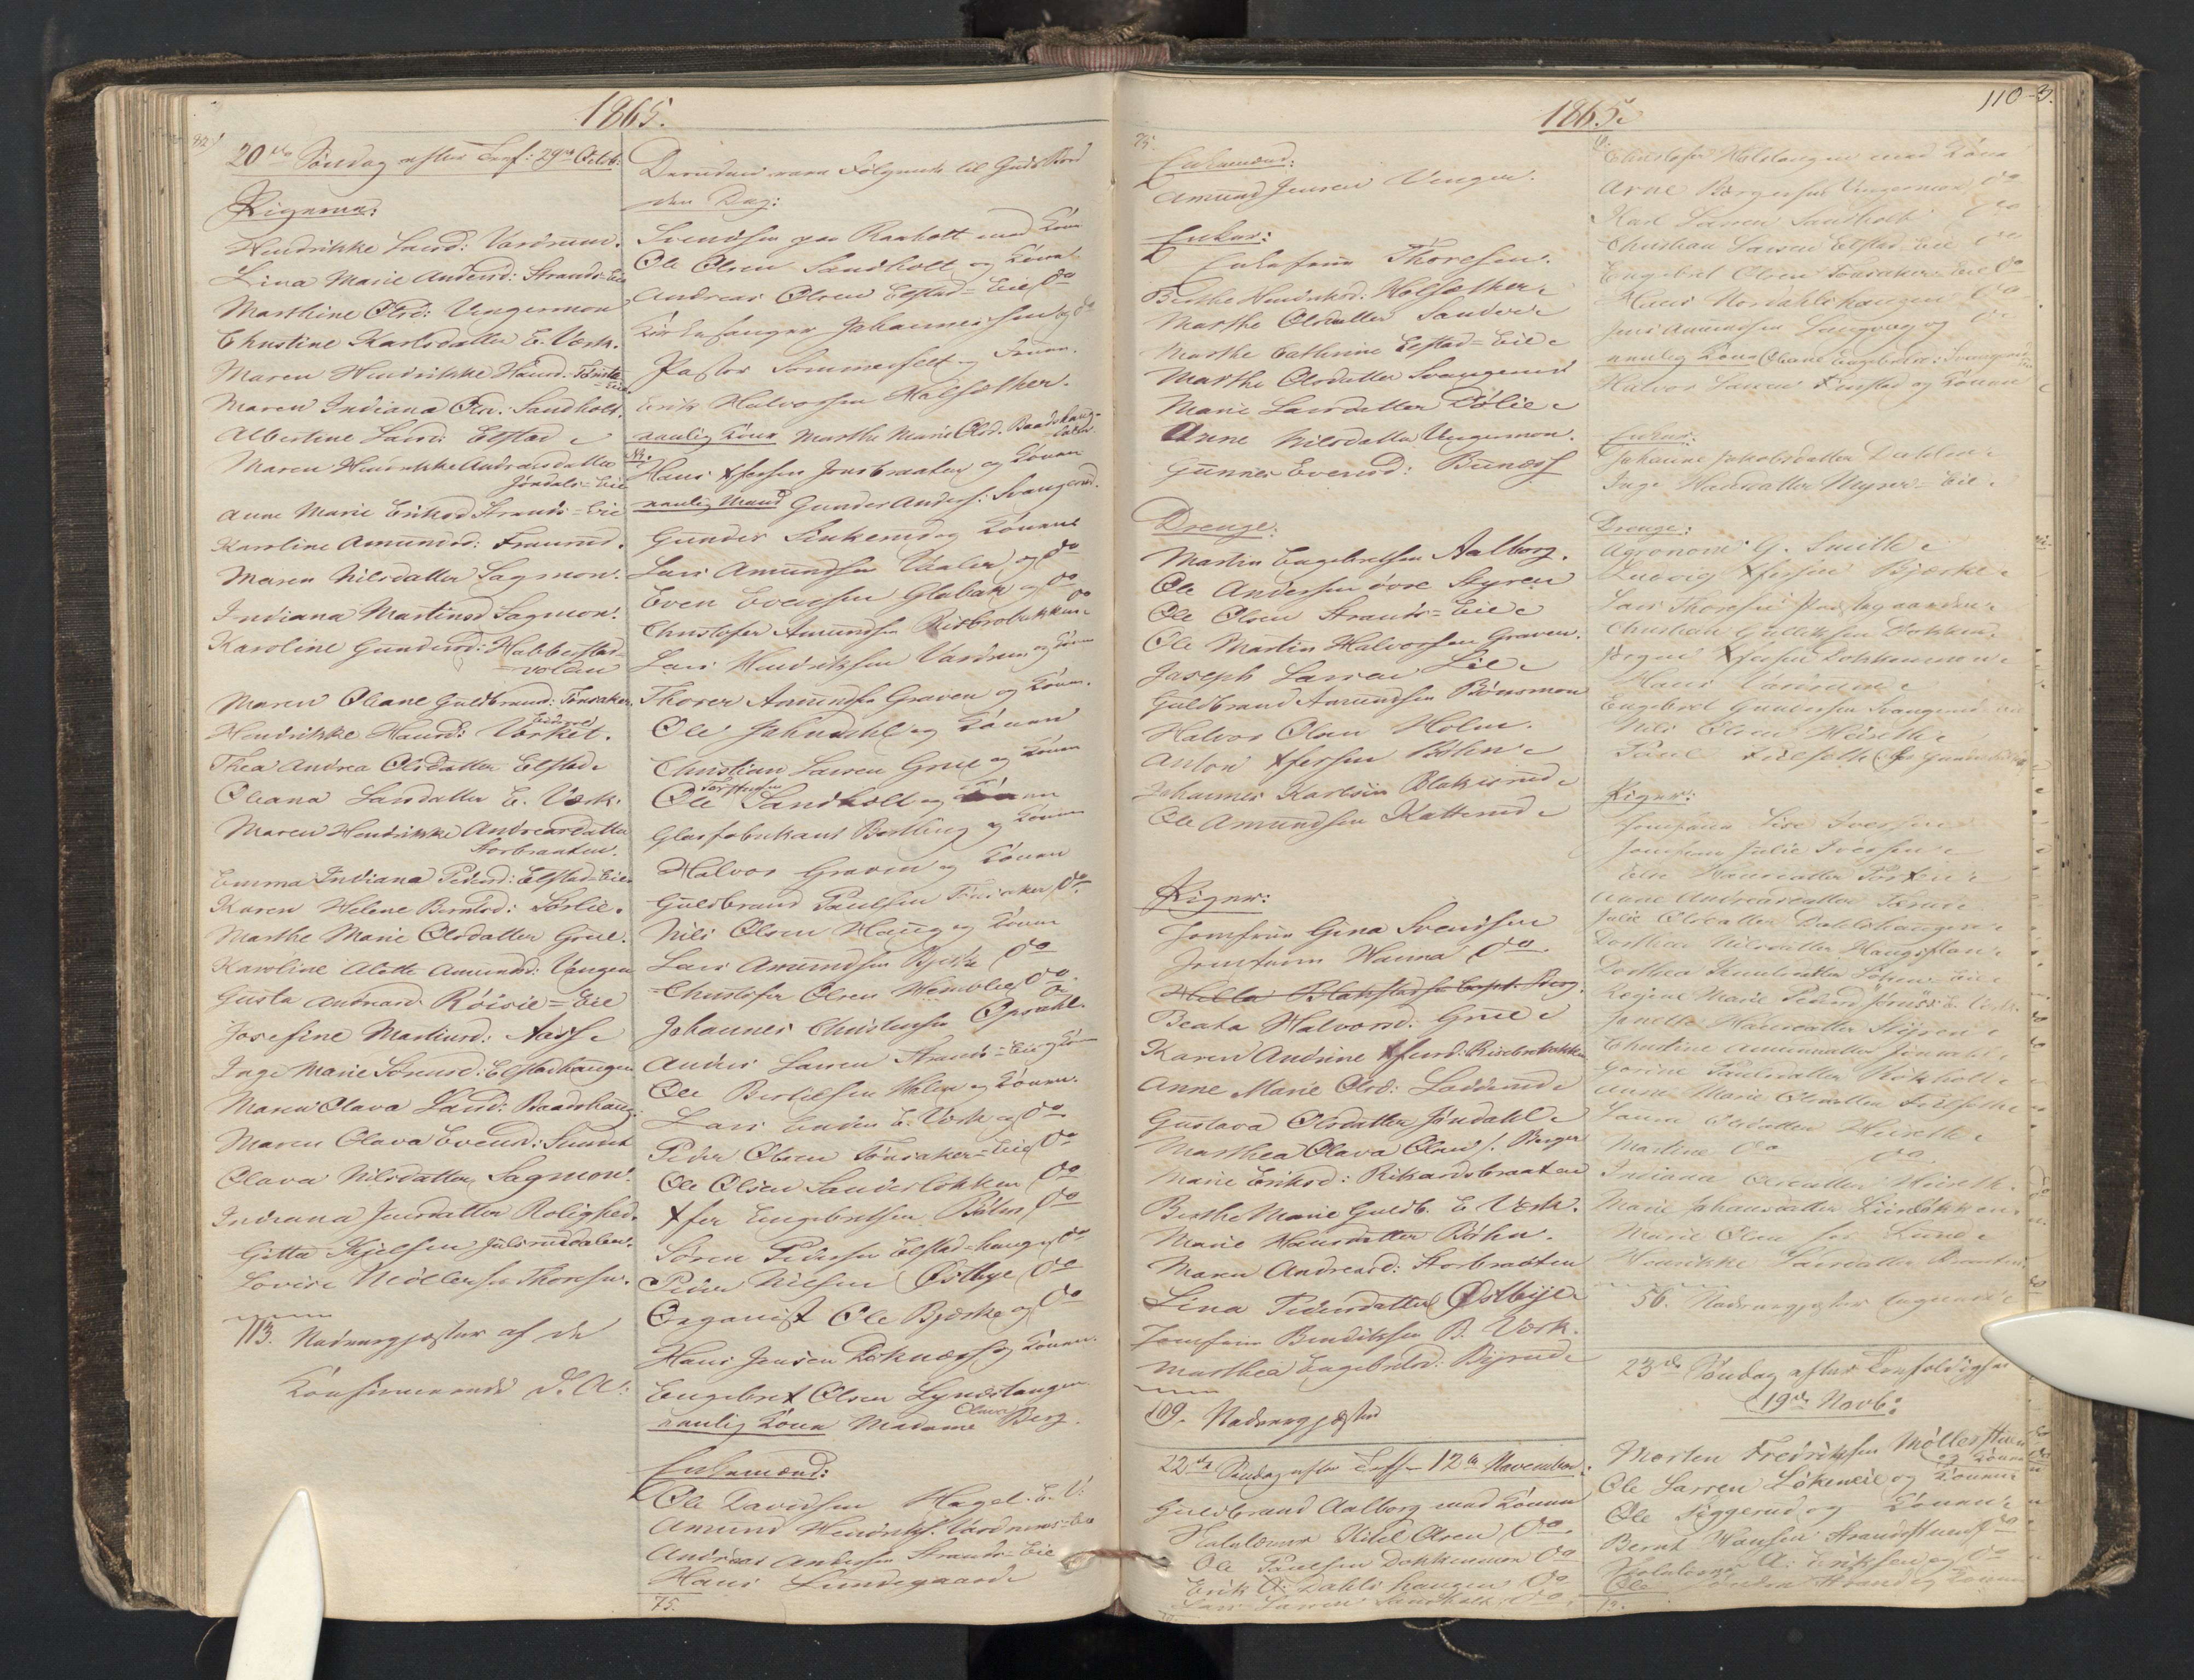 1865.
82.
20de Søndag efter Tref: 29de Octob:
Pigerne:
Hendrikke Larsd: Vardmun.
Lina Marie Andersd: Strands-Eie
Marthine Olsd: Vengermoen
Christine Karlsdatter E. Værk.
Maren Hendrikke Hansd:
Maren Indiana Sandholt.
Albertine Larsd: Elstad
Maren Hendrikke Andreasdatter
Jøndals-Eie
Anne Marie Eriksd Strands-Eie
Karoline Amundsd:
Maren Nilsdatter Sagmon.
Indiana Martinsd Sagmon.
Karoline Gundersd: Habberstad-
volden
Maren Oleane Guldbrand: Tønsaker
Hendrikke Hansd: Værket.
Thea Andrea Olsdatter Elstad
Oleana Larsdatter E. Værk.
Maren Hendrikke Andreasdatter
Storbraaten.
Emma Indiana Pedersd: Elstad-Eie
Karen Helene Berntsd: Sørlie.
Marthe Marie Olsdatter Grue.
Karoline Alette Amundsd: Vengen
Gusta Andreasd Røisie-Eie
Josefine Martinsd: Aas
Inge Marie Sørensd: Elstadhaugen
Maren Olava Larsd: Raadshaug
Maren Olava Evensd:
Olava Nilsdatter Sagmon.
Indiana Jensdatter Rolighed.
Gitta Kjelsen Julsrudsdalen.
Lovise Thoresen.
113. Nadvergjæster af de
Konfirmerede D: A:
Desuden vare Følgende til Guds Bord
den Dag:
Svendsen paa Raaholt med Kone
Ole Olsen Sandholt og Kone
Andreas Olsen Elstad-Eie do
Kirkesanger Johannessen og do
Pastor Sommerfelt og Frue.
Erik Halvorsen Halsæther.
nemlig Kone Marthe Marie Olsd. Raadshaug-
NB.
Hans Xfersen Jonsbraaten og Konen
nemlig Mand Gunder Anders: Svangerud.
Gunder Sinkerud og Konen
Lars Amundsen Vaaler og do
Even Evensen Glabak og do
Christofer Amundsen Risbrobakken do
Lars Hendriksen Vardmun og Kone
Thorer Amundsen Graven og Kone.
Ole Jahndahl og Konen
Christian Larsen Grue og Konen
Ole Torstensen Sandholt og Konen
Glasfabrikant Bertling og Konen
Halvor Graven og Konen
Guldbrand Paulsen Tønsaker do.
Nils Olsen Haug og Konen
Lars Amundsen Bjerke do
Christofer Olsen Wemblie do
Johannes Christensen Opsahl.
Anders Larsen Strands-Eie og Kone
Ole Bertilsen Holen og Konen.
Lars Enden E. Værk og do
Peder Olsen Tønsaker-Eie do
Ole Olsen Sandersløkken do
Xfer Engebretsen Bøhn do
Søren Pedersen Elstad-haugen do
Peder Nielsen Østbye do
Organist Ole Bjerke og do
Hans Jensen Doknæs og Konen.
Engebret Olsen Lynæstangen
nemlig Kone Madame Olava Berg.
Enkemænd:
Ole Davidsen Hagel. E. V:
Amund Hendriks. Vardmuns-Eie
Andreas Andersen Strands-Eie
Hans Lundsgaard
75.
1865.
110-3.
75.
Enkemænd:
Amund Jensen Vengen.
Enker:
Enkefrue Thoresen.
Berthe Hendriksd: Halsæther
Marthe Olsdatter Sander
Marthe Cathrine Elstad-Eie
Marthe Olsdatter Svangerud
Marie Larsdatter Dølie
Anne Nilsdatter Vengermon.
Gunner Evensd: Bunæs
Drenge:
Martin Engebretsen Aalborg.
Ole Andersen øvre Styren
Ole Olsen Strands-Eie
Ole Martin Halvorsen Graven.
Joseph Larsen Lie
Guldbrand Amundsen Bønsmon
Halvor Olsen Holm.
Anton Xfersen Bøhn
Johannes Karlsen Blakisrud
Ole Amundsen Katterud
Piger:
Jomfrue Gina Svendsen
Jomfrue Hanna do
Beata Halvorsd. Grue
Karen Andrine Xfersd: Risbrobakken
Anne Marie Olsd: Ladderud
Gustava Olsdatter Jøndahl
Marthea Olava Olavs: Berger
Marie Eriksd: Rikardsbraaten
Berthe Marie Guldb. E. Værk.
Marie Hansdatter Bøhn.
Maren Andreasd: Storbraaten
Lina Pedersdatter Østbye
Jomfrue Bendiksen B. Værk.
Marthea Engebretsd. Byrud
109. Nadvergjæster
22de Søndag efter Tref 12te November.
Guldbrand Aalborg med Konen
Skolelærer Kittel Olsen do.
Ole Paulsen Dokkenmon do
Erik O: Dahlshaugen do
Lars Larsen Sandholt do
10.
Christofer Holstangen med Kone
Arne Børgersen Vengermoen do
Karl Larsen Sandholt do
Christian Larsen Elstad-Eie do
Engebret Olsen Tønsaker-Eie do
Hans Nordahlshaugen do
Jens Amundsen Langvag og do
nemlig Kone Oleane Engebretsd: Svangerud
Halvor Larsen Finstad og Konen
Enker:
Johanne Jakobsdatter Dahlen
Inge Hansdatter Myrer-Eie
Drenge:
Agronom G. Smith
Ludvig Xfersen Bjerke
Lars Thoresen Præstegaarden
Christian Gulliksen Dokken
Jørgen Xfersen Dokkenmon
Hans
Engebret Gundersen Svangerud
Nils Olsen Heieth
Piger:
Jomfrue Lise Iversen
Jomfrue Julie Iversen
Else Hansdatter
Anne Andreasdatter
Julie Olsdatter Dahlshaugen
Dorthea Nilsdatter Haugsplan
Dorthea
Regine Marie Pedersd
Janette Hansdatter Styren
Christine Amundsdatter Jøndahl
Gorine Paulsdatter Røkholt
Anne Marie Olsdatter
Laura Olsdatter Heieth
Martine do do
Indiana Olsdatter Heieth.
Marie Johansdatter Lundløkken
Marie Olsen Lund
Hendrikke Larsdatter Braaten
56. Nadvergjæster
23de Søndag efter Trefoldighed
19de Novb:
Morten Fredriksen Møllerstuen
og Konen
Ole Larsen Løkeneie og Konen
Ole Tyggerud og Konen
Bernt Hansen Strandstuen do
Skolelærer A: Eriksen og do
Ole Strand og Konen
12.